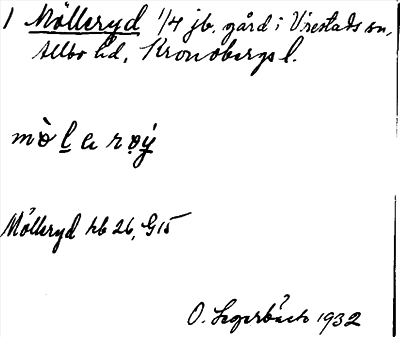 1 Mölleryd 1/4 jb. gård i Virestads sn,
Allbo hd, Kronobergs l.
mò̤l̲erø̣ý
Mölleryd hb 26, G15
O. 1932